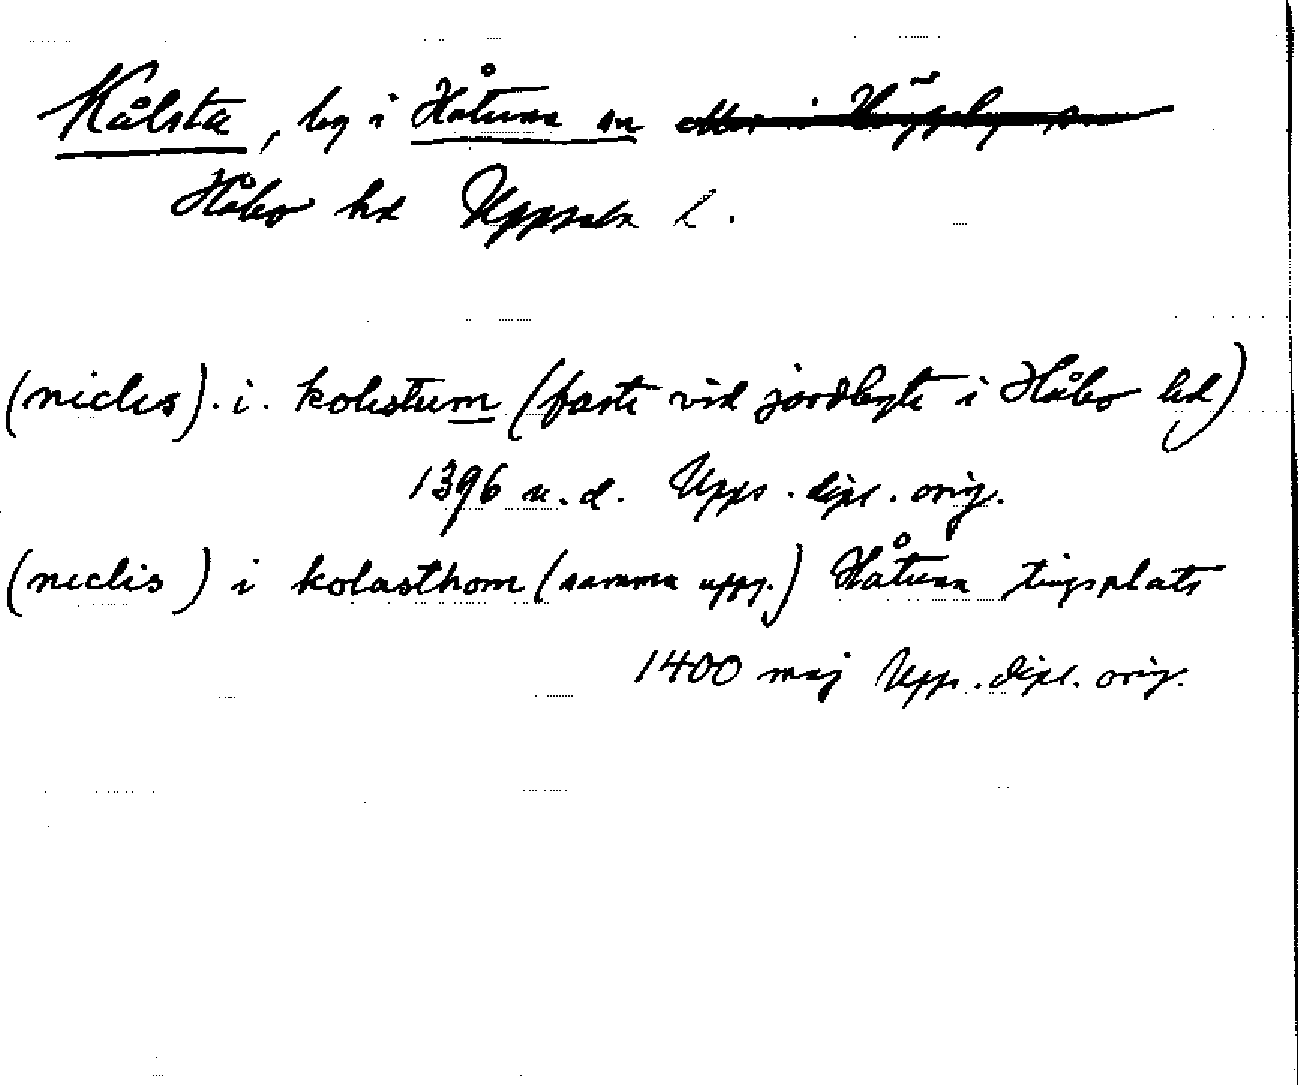 Kålsta, beg i Håtuna sn eller i Häggeby sn
Håbo hd Uppsala l.
(niclis). i. kolistum (faste vid jordbyte i Håbo hd)
1396 u. d. Upps. dipl. orig.
(niclis) i kolasthom (samma uppg.) Håtuna tingsplats
1400 maj Upps. dipl. orig.